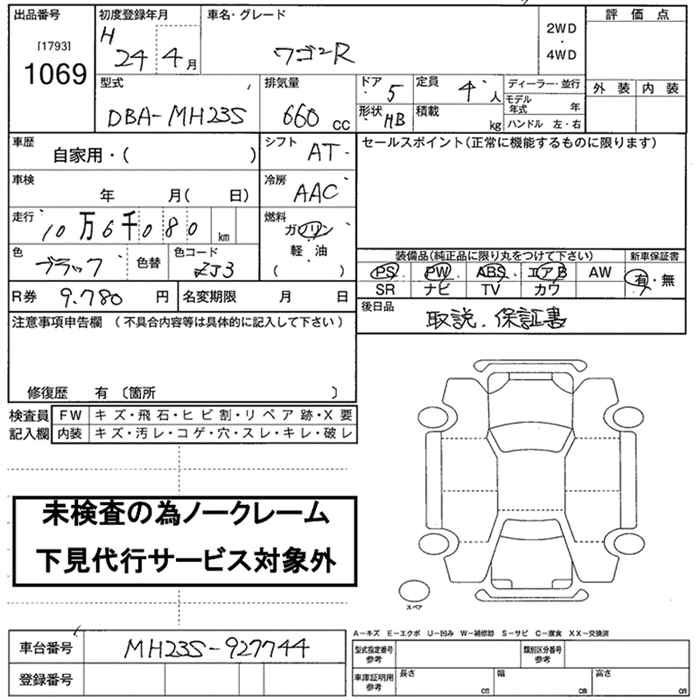 出品番号 初度登録年月 車名・グレード 2WD ・ 4WD 評価点
[1793] 1069 H 24 4月 ワゴンR
外装 内装
型式 排気量 ドア 5 定員 4人 ディーラー・並行
DBA-MH23S 660 cc 形状 HB 積載 kg モデル年式 年
ハンドル 左・右
車歴 自家用・( ) シフト AT セールスポイント(正常に機能するものに限ります)
車検 年 月( 日) 冷房 AAC
走行 10万6千080 km 燃料 ガソリン
軽油
( )
色 ブラック 色替 色コード ZJ3
装備品(純正品に限り丸をつけて下さい) 新車保証書
PS PW ABS エアB AW 有・無
SR ナビ TV カワ
R券 9.780 円 名変期限 月 日
後日品 取説.保証書
注意事項申告欄 (不具合内容等は具体的に記入して下さい)
修復歴 有 〔箇所 〕
検査員 FW キズ・飛石・ヒビ割・リペア跡・X要
記入欄 内装 キズ・汚レ・コゲ・穴・スレ・キレ・破レ
未検査の為ノークレーム
下見代行サービス対象外
スペア
A-キズ E-エクボ U-凹み W-補修跡 S-サビ C-腐食 XX-交換済
車台番号 MH23S-927744
型式指定番号 参考 類別区分番号 参考
登録番号
車庫証明用 参考 長さ cm 幅 cm 高さ cm